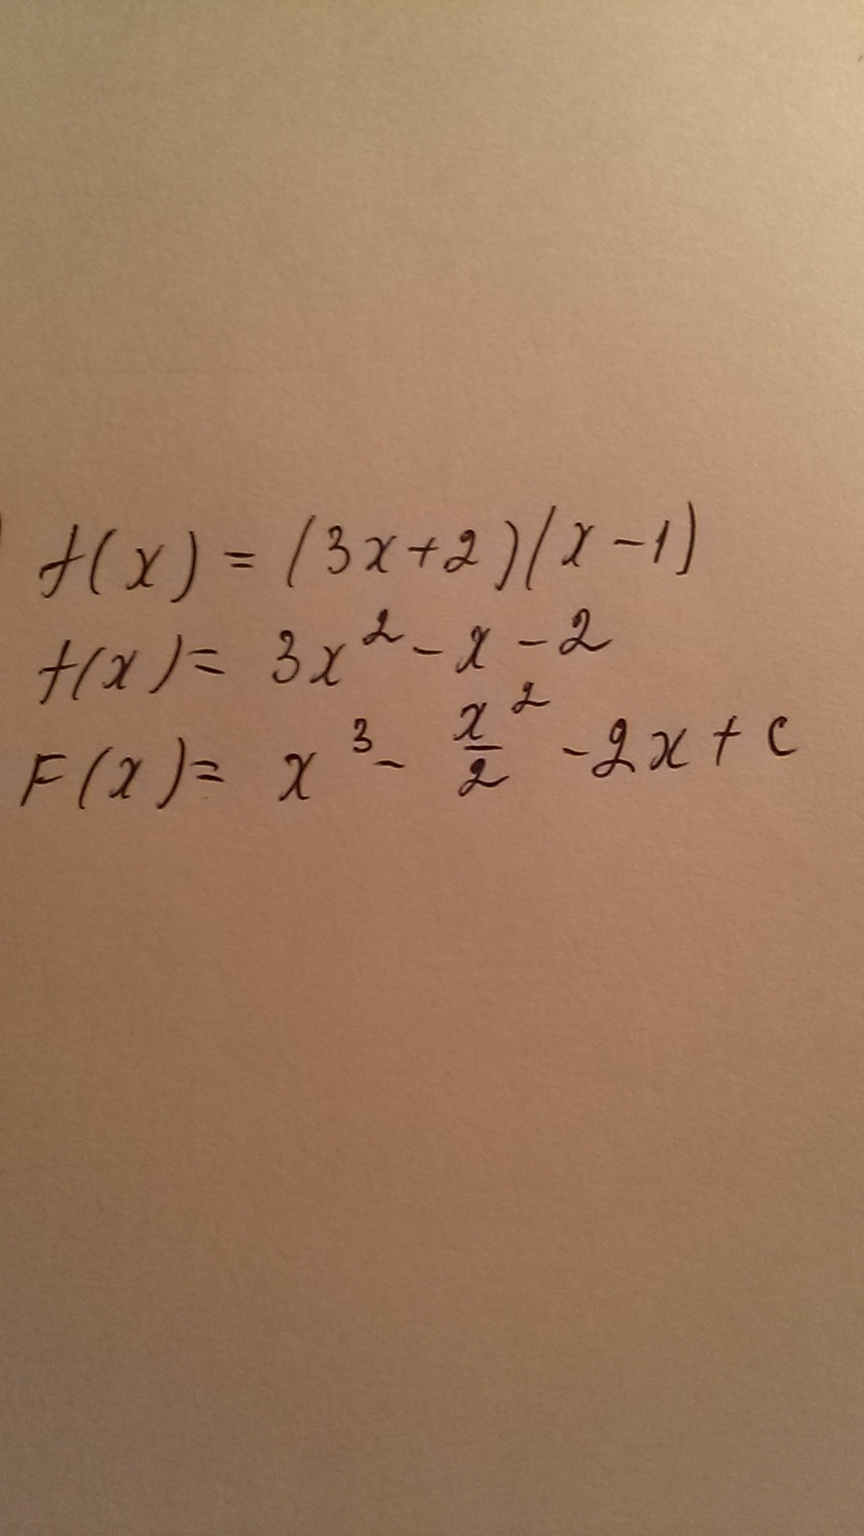 f(x) = (3x+2)(x-1)
f(x) = 3x² - x - 2
F(x) = x³ - x²/2 - 2x + c